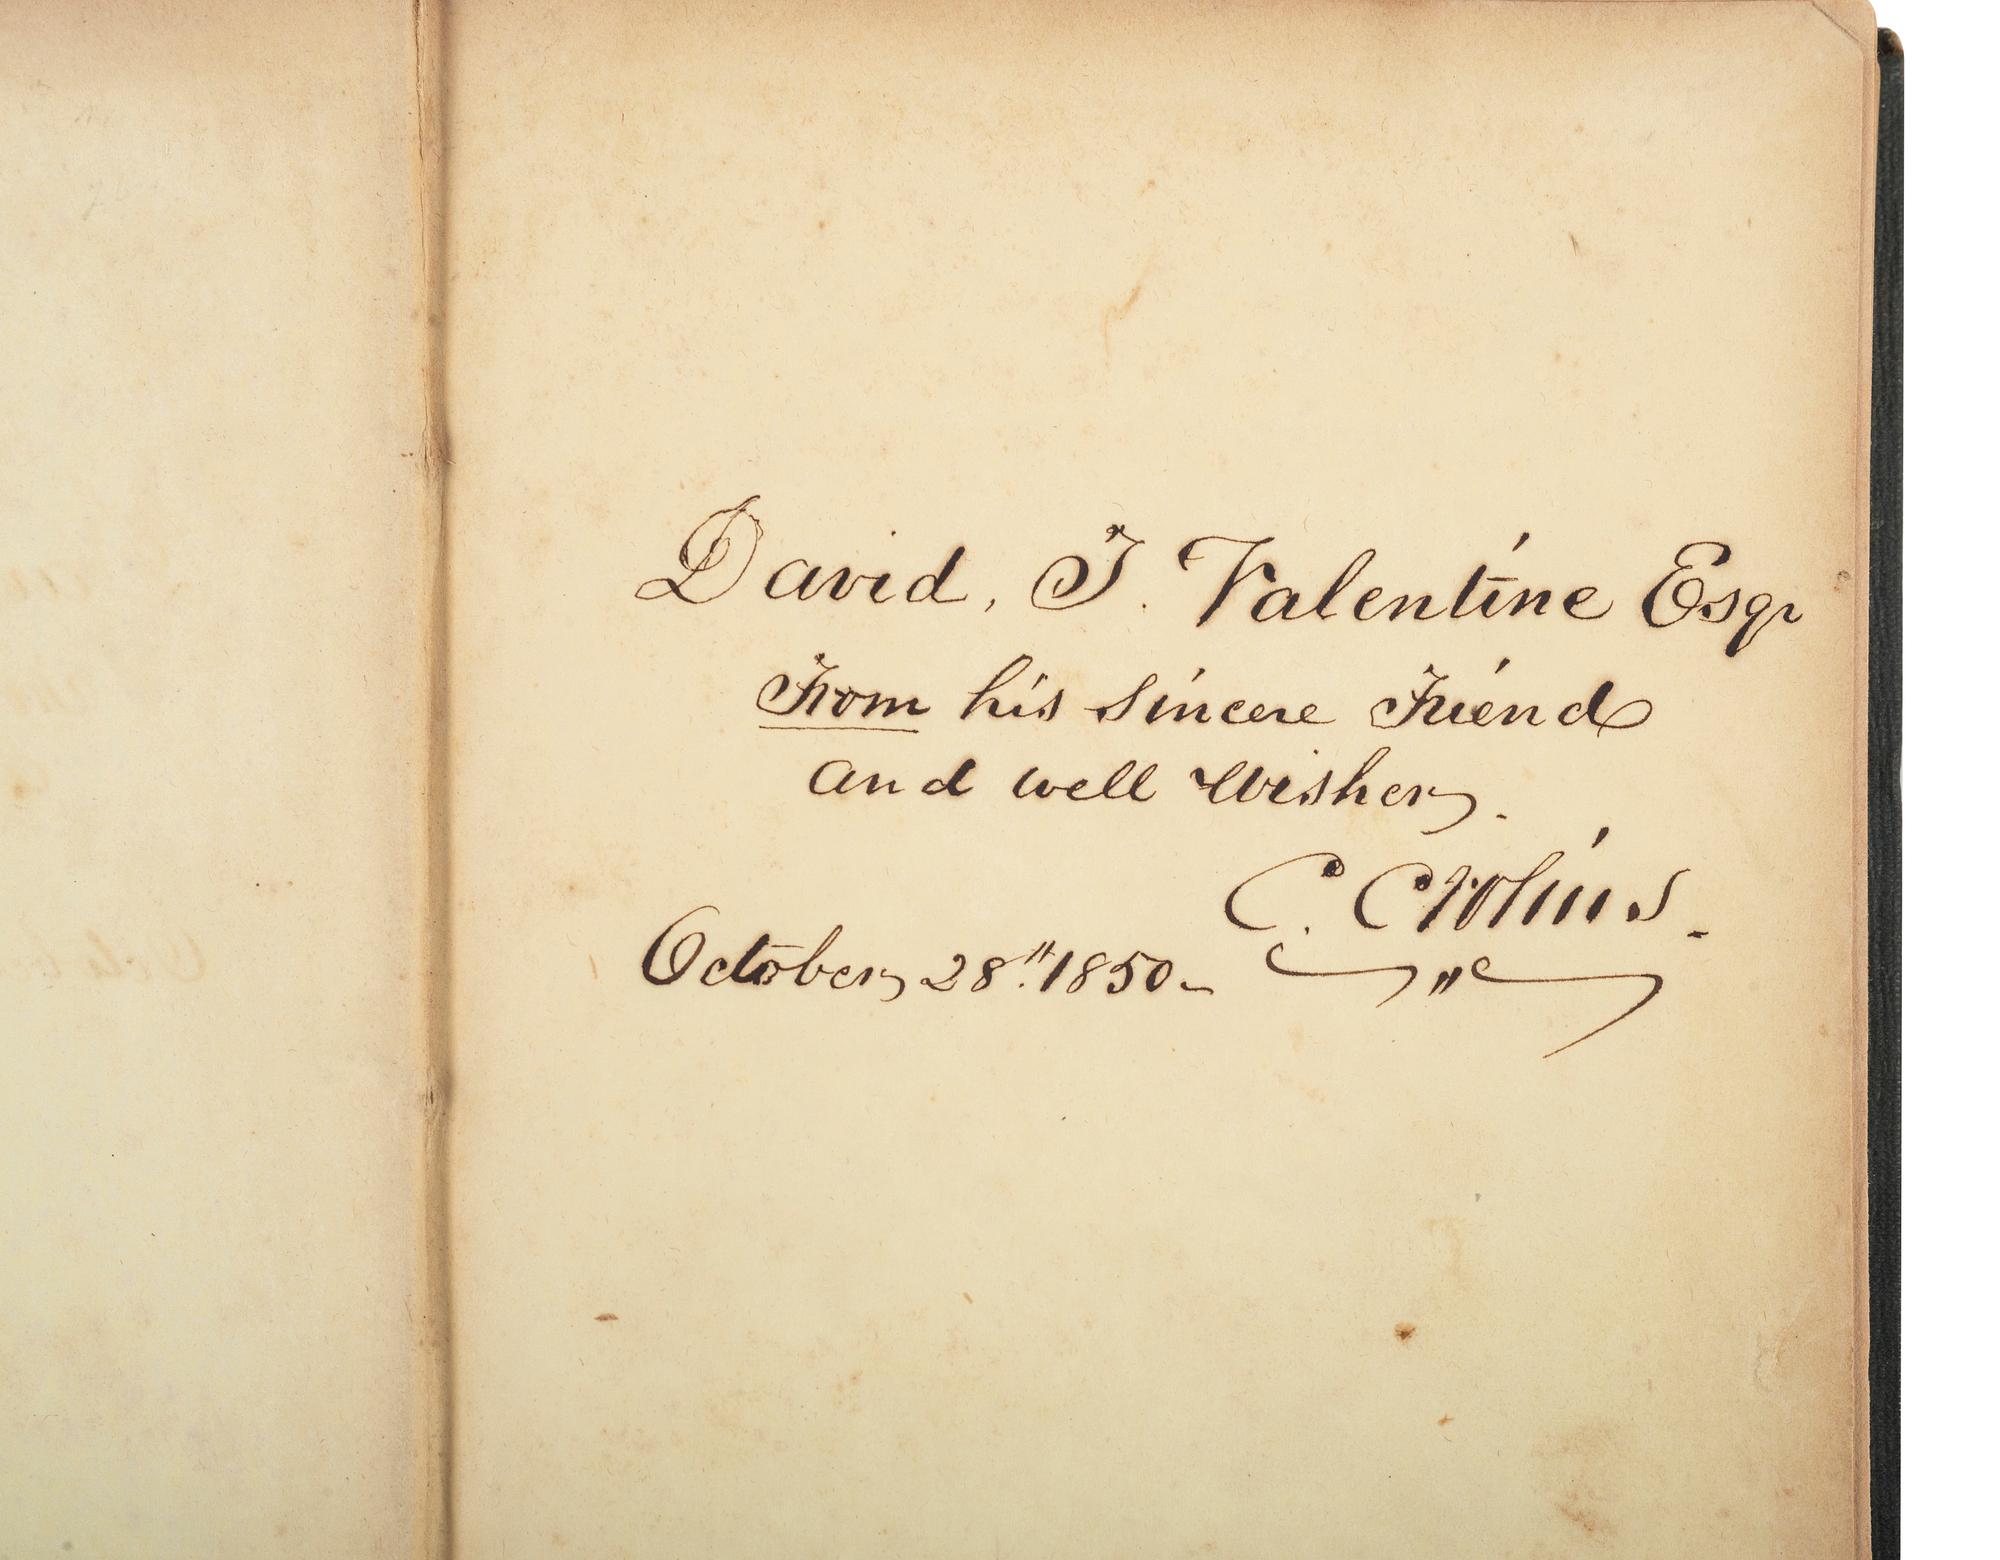 David, T. Valentine Esqr
From his Sincere Friend
and well Wisher.
C. Crolius.
October 28th. 1850.